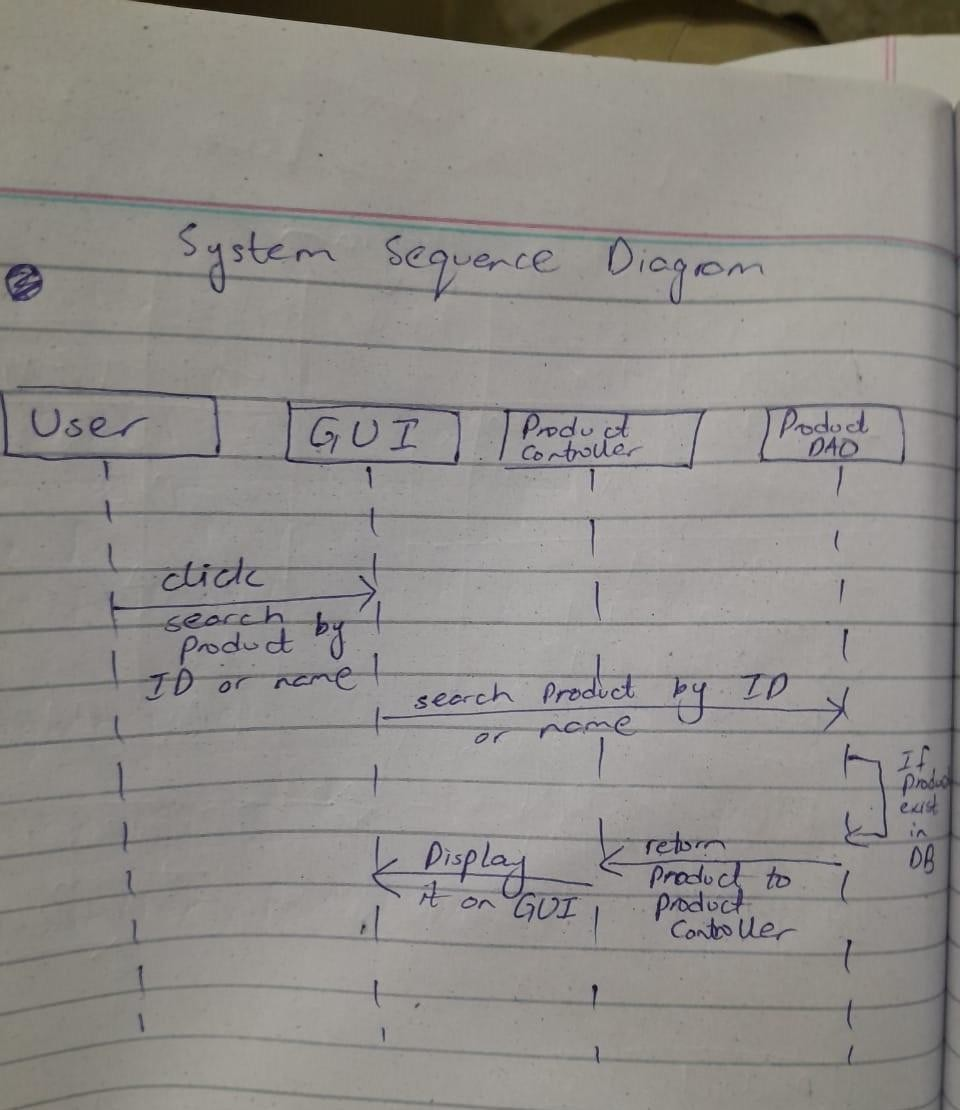 System Sequence Diagram
User
GUI
Product
Controller
Product
DAO
click
search
Product by
ID or name
search Product by ID
or name
If
Produc
exist
in
DB
return
Product to
Product
Controller
Display
it on GUI